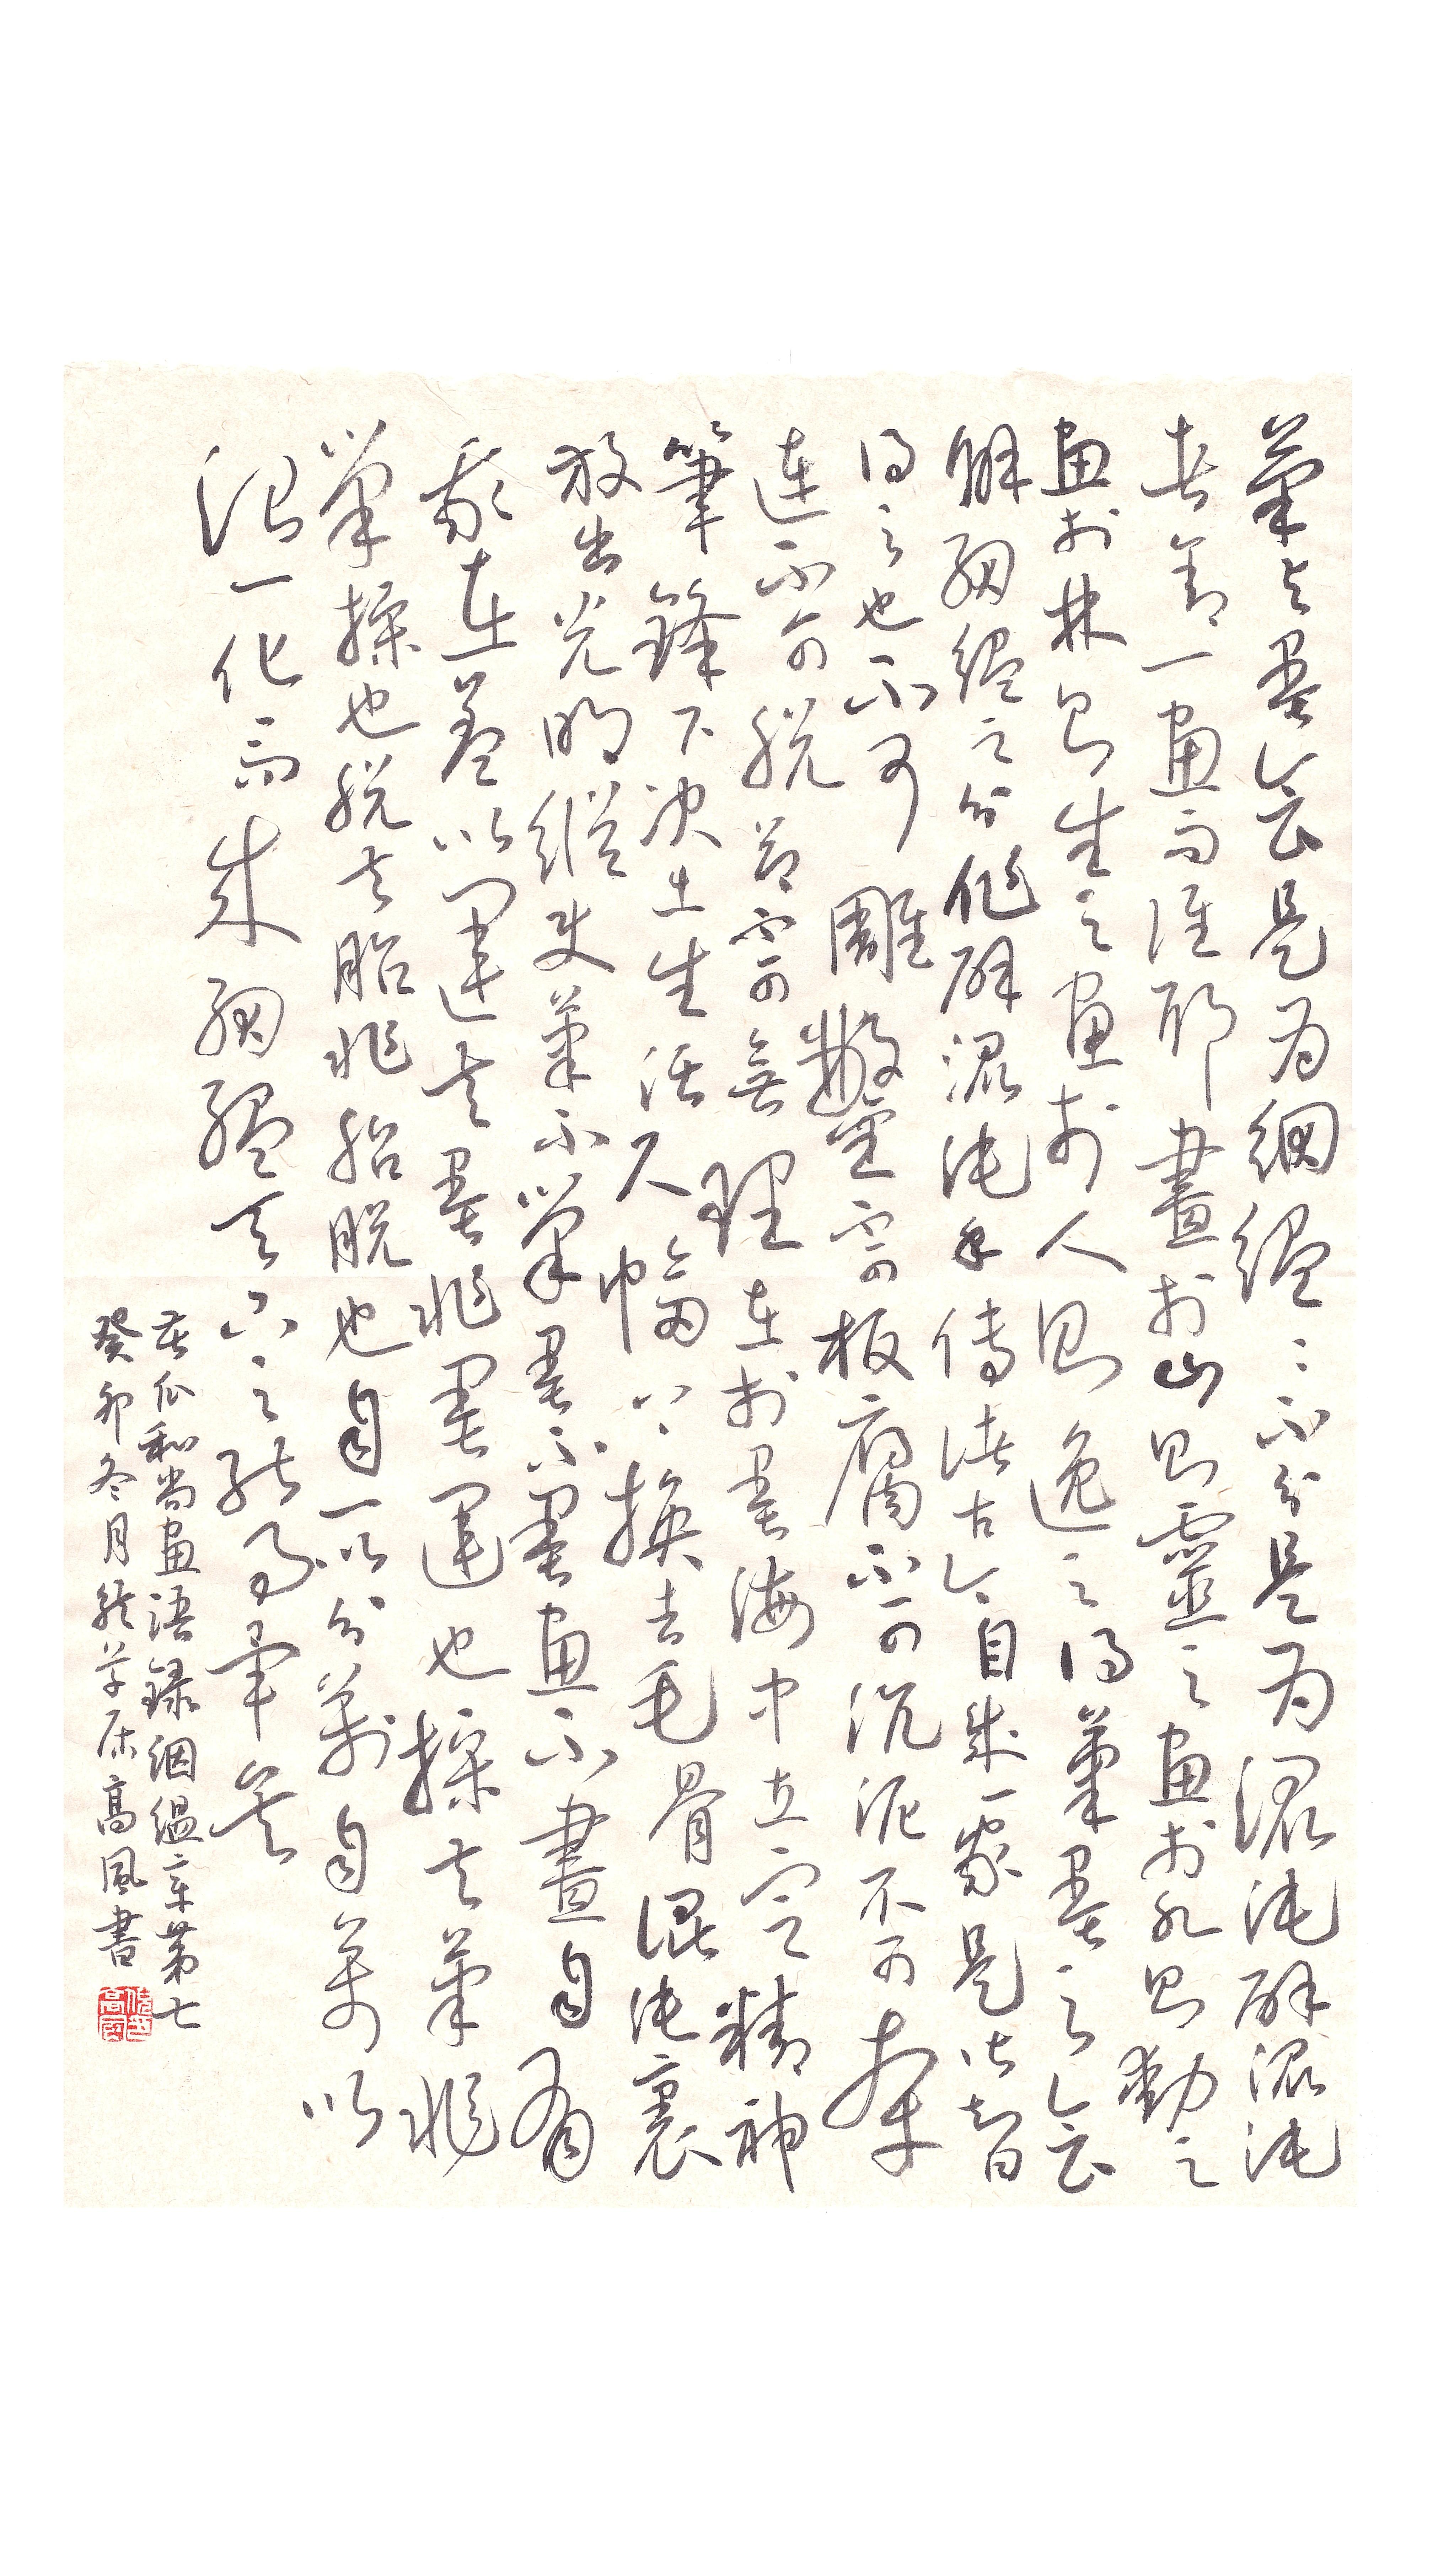 筆與墨會是為絪縕絪縕不分是為混沌辟混沌
者舍一畫而誰耶畫於山則靈之畫於水則動之
畫於林則生之畫於人則逸之得筆墨之會
解絪縕之分作辟混沌手傳諸古今自成一家是皆智
得之也不可雕鑿不可板腐不可沉泥不可牽
連不可脫節不可無理在於墨海中立定精神
筆鋒下決出生活尺幅上換去毛骨混沌裏
放出光明縱使筆不筆墨不墨畫不畫自有
我在蓋以運夫墨非墨運也操夫筆非
筆操也脫夫胎非胎脫也自一以分萬自萬以
治一化一而成絪縕天下之能事畢矣
苦瓜和尚畫語錄絪縕章第七
癸卯冬月於草居高風書